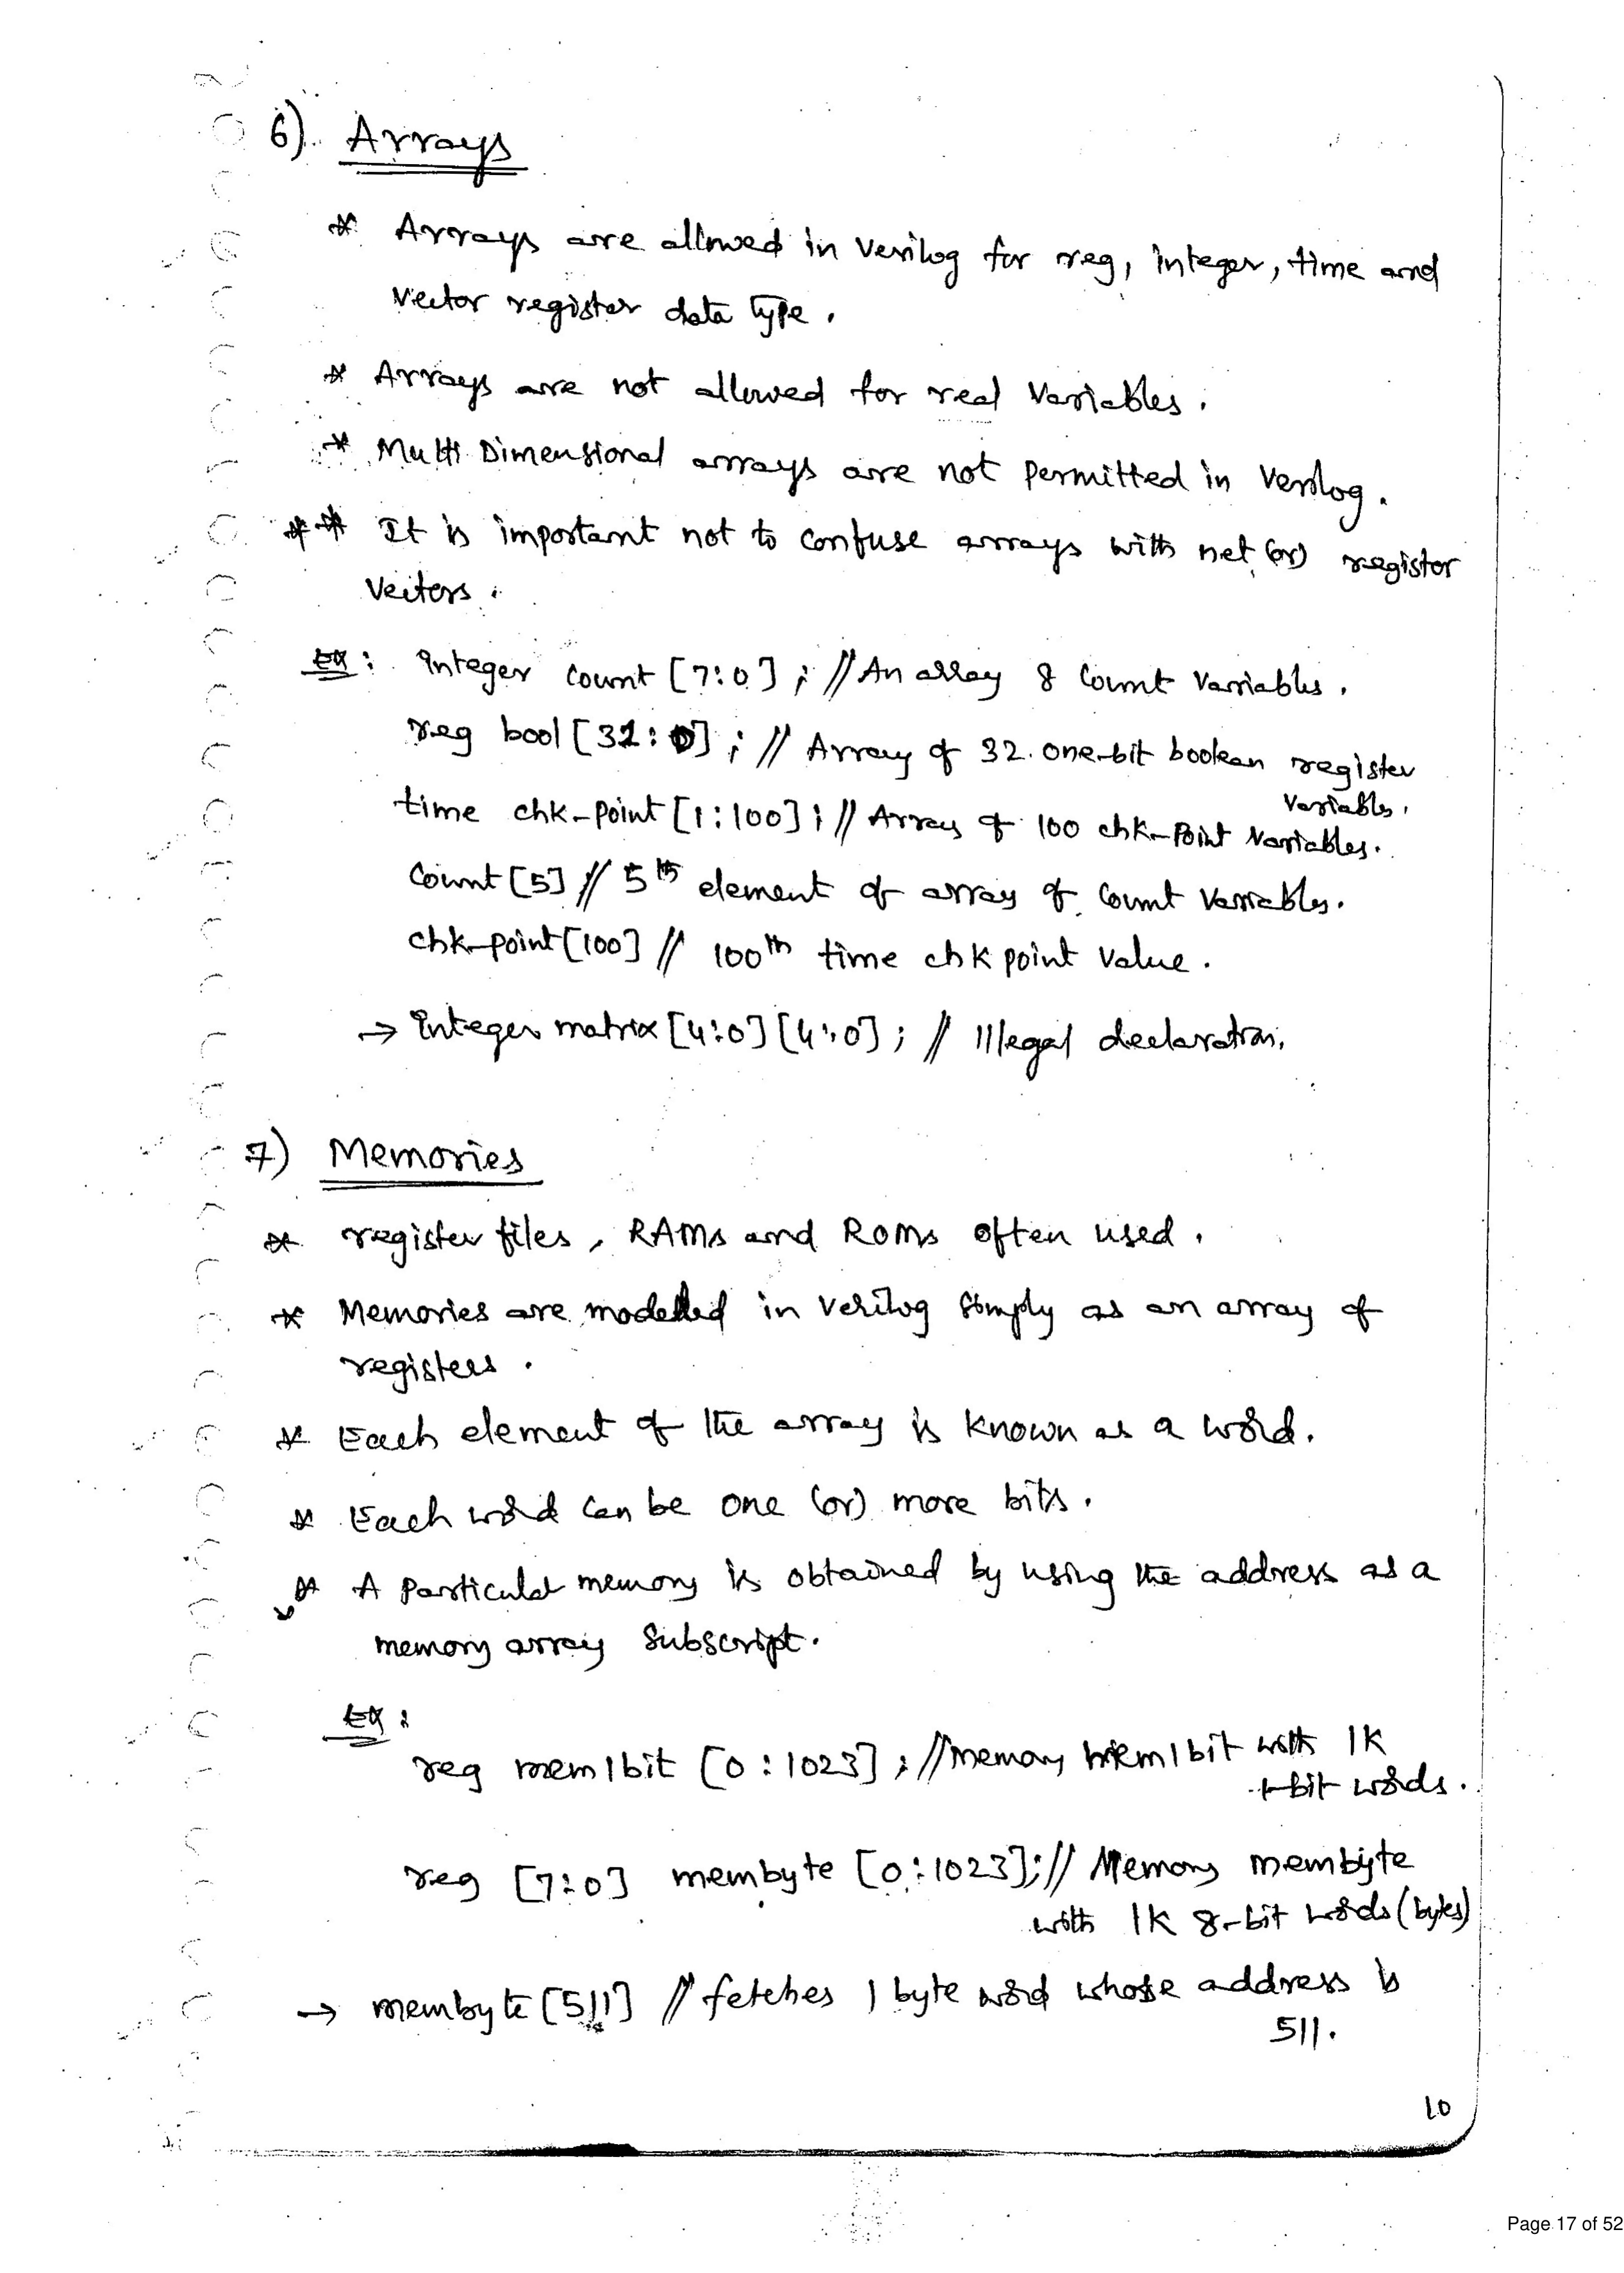 6) Arrays
* Arrays are allowed in Verilog for reg, integer, time and
vector register data type.
* Arrays are not allowed for real variables.
* Multi Dimensional arrays are not permitted in Verilog.
** It is important not to confuse arrays with net (or) register
vectors.
Ex: Integer count [7:0]; // An array 8 count variables.
reg bool [31:0]; // Array of 32 one-bit boolean register
variables.
time chk-point [1:100]; // Array of 100 chk-point variables.
count [5] // 5th element of array of count variables.
chk-point [100] // 100th time chk point value.
→ Integer matrix [4:0] [4:0]; // Illegal declaration.
7) Memories
* register files, RAMs and ROMs often used.
* Memories are modelled in verilog simply as an array of
registers.
* Each element of the array is known as a word.
* Each word can be one (or) more bits.
* A particular memory is obtained by using the address as a
memory array subscript.
Ex:
reg mem1bit [0:1023]; // memory mem1bit with 1K
1-bit words.
reg [7:0] membyte [0:1023]; // Memory membyte
with 1K 8-bit words (bytes)
→ membyte [511] // fetches 1 byte word whose address is
511.
10
Page 17 of 52